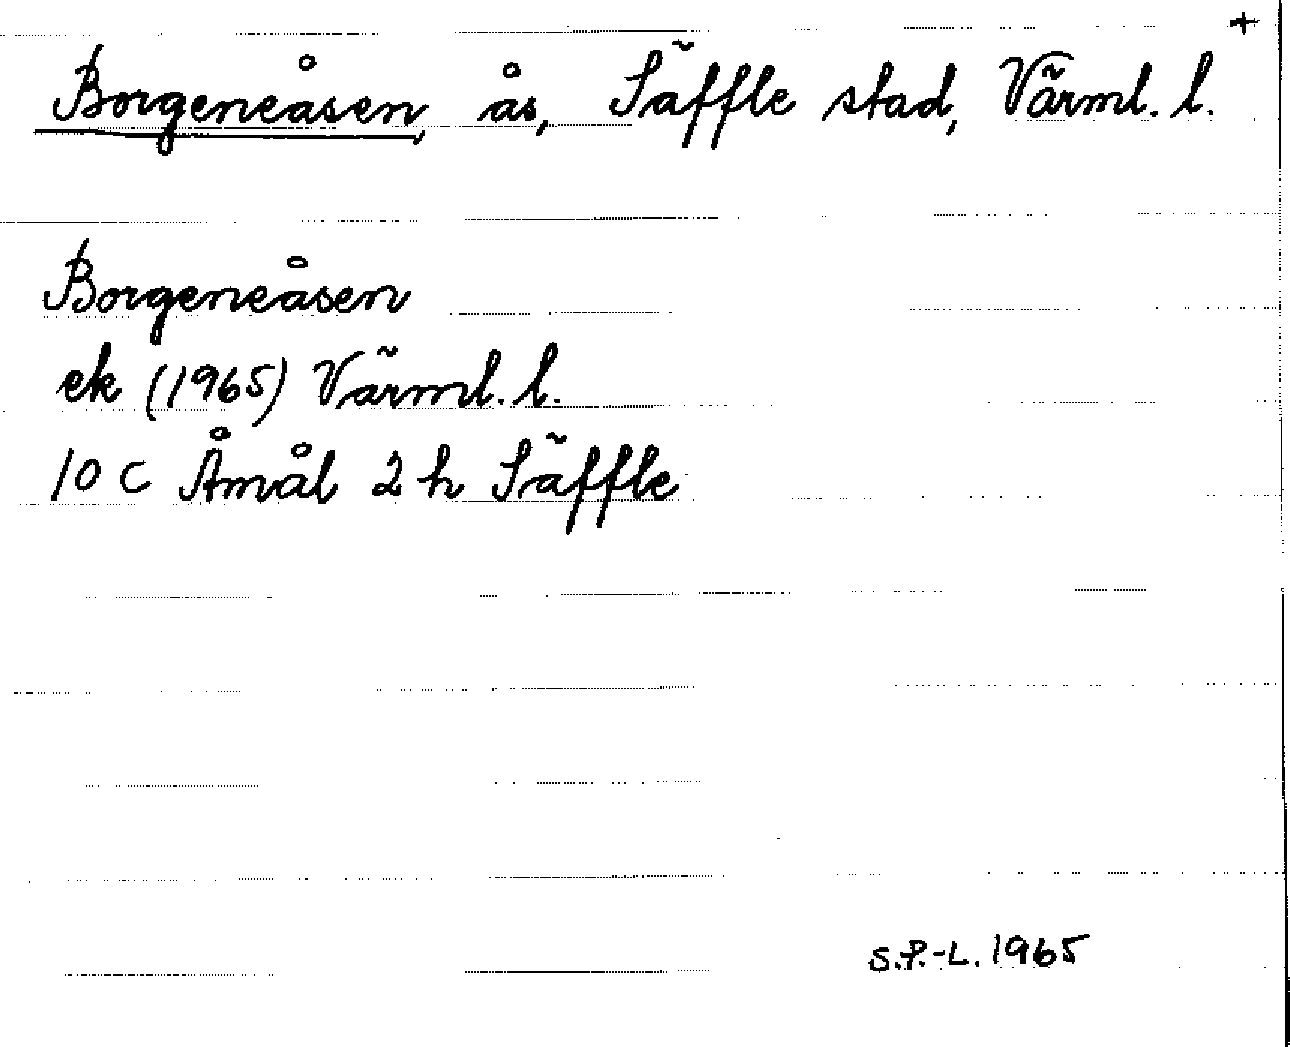 +
Borgeneåsen, ås, Säffle stad, Värml. l.
Borgeneåsen
ek (1965) Värml. l.
10 C Åmål 2 h Säffle
S.P.-L. 1965